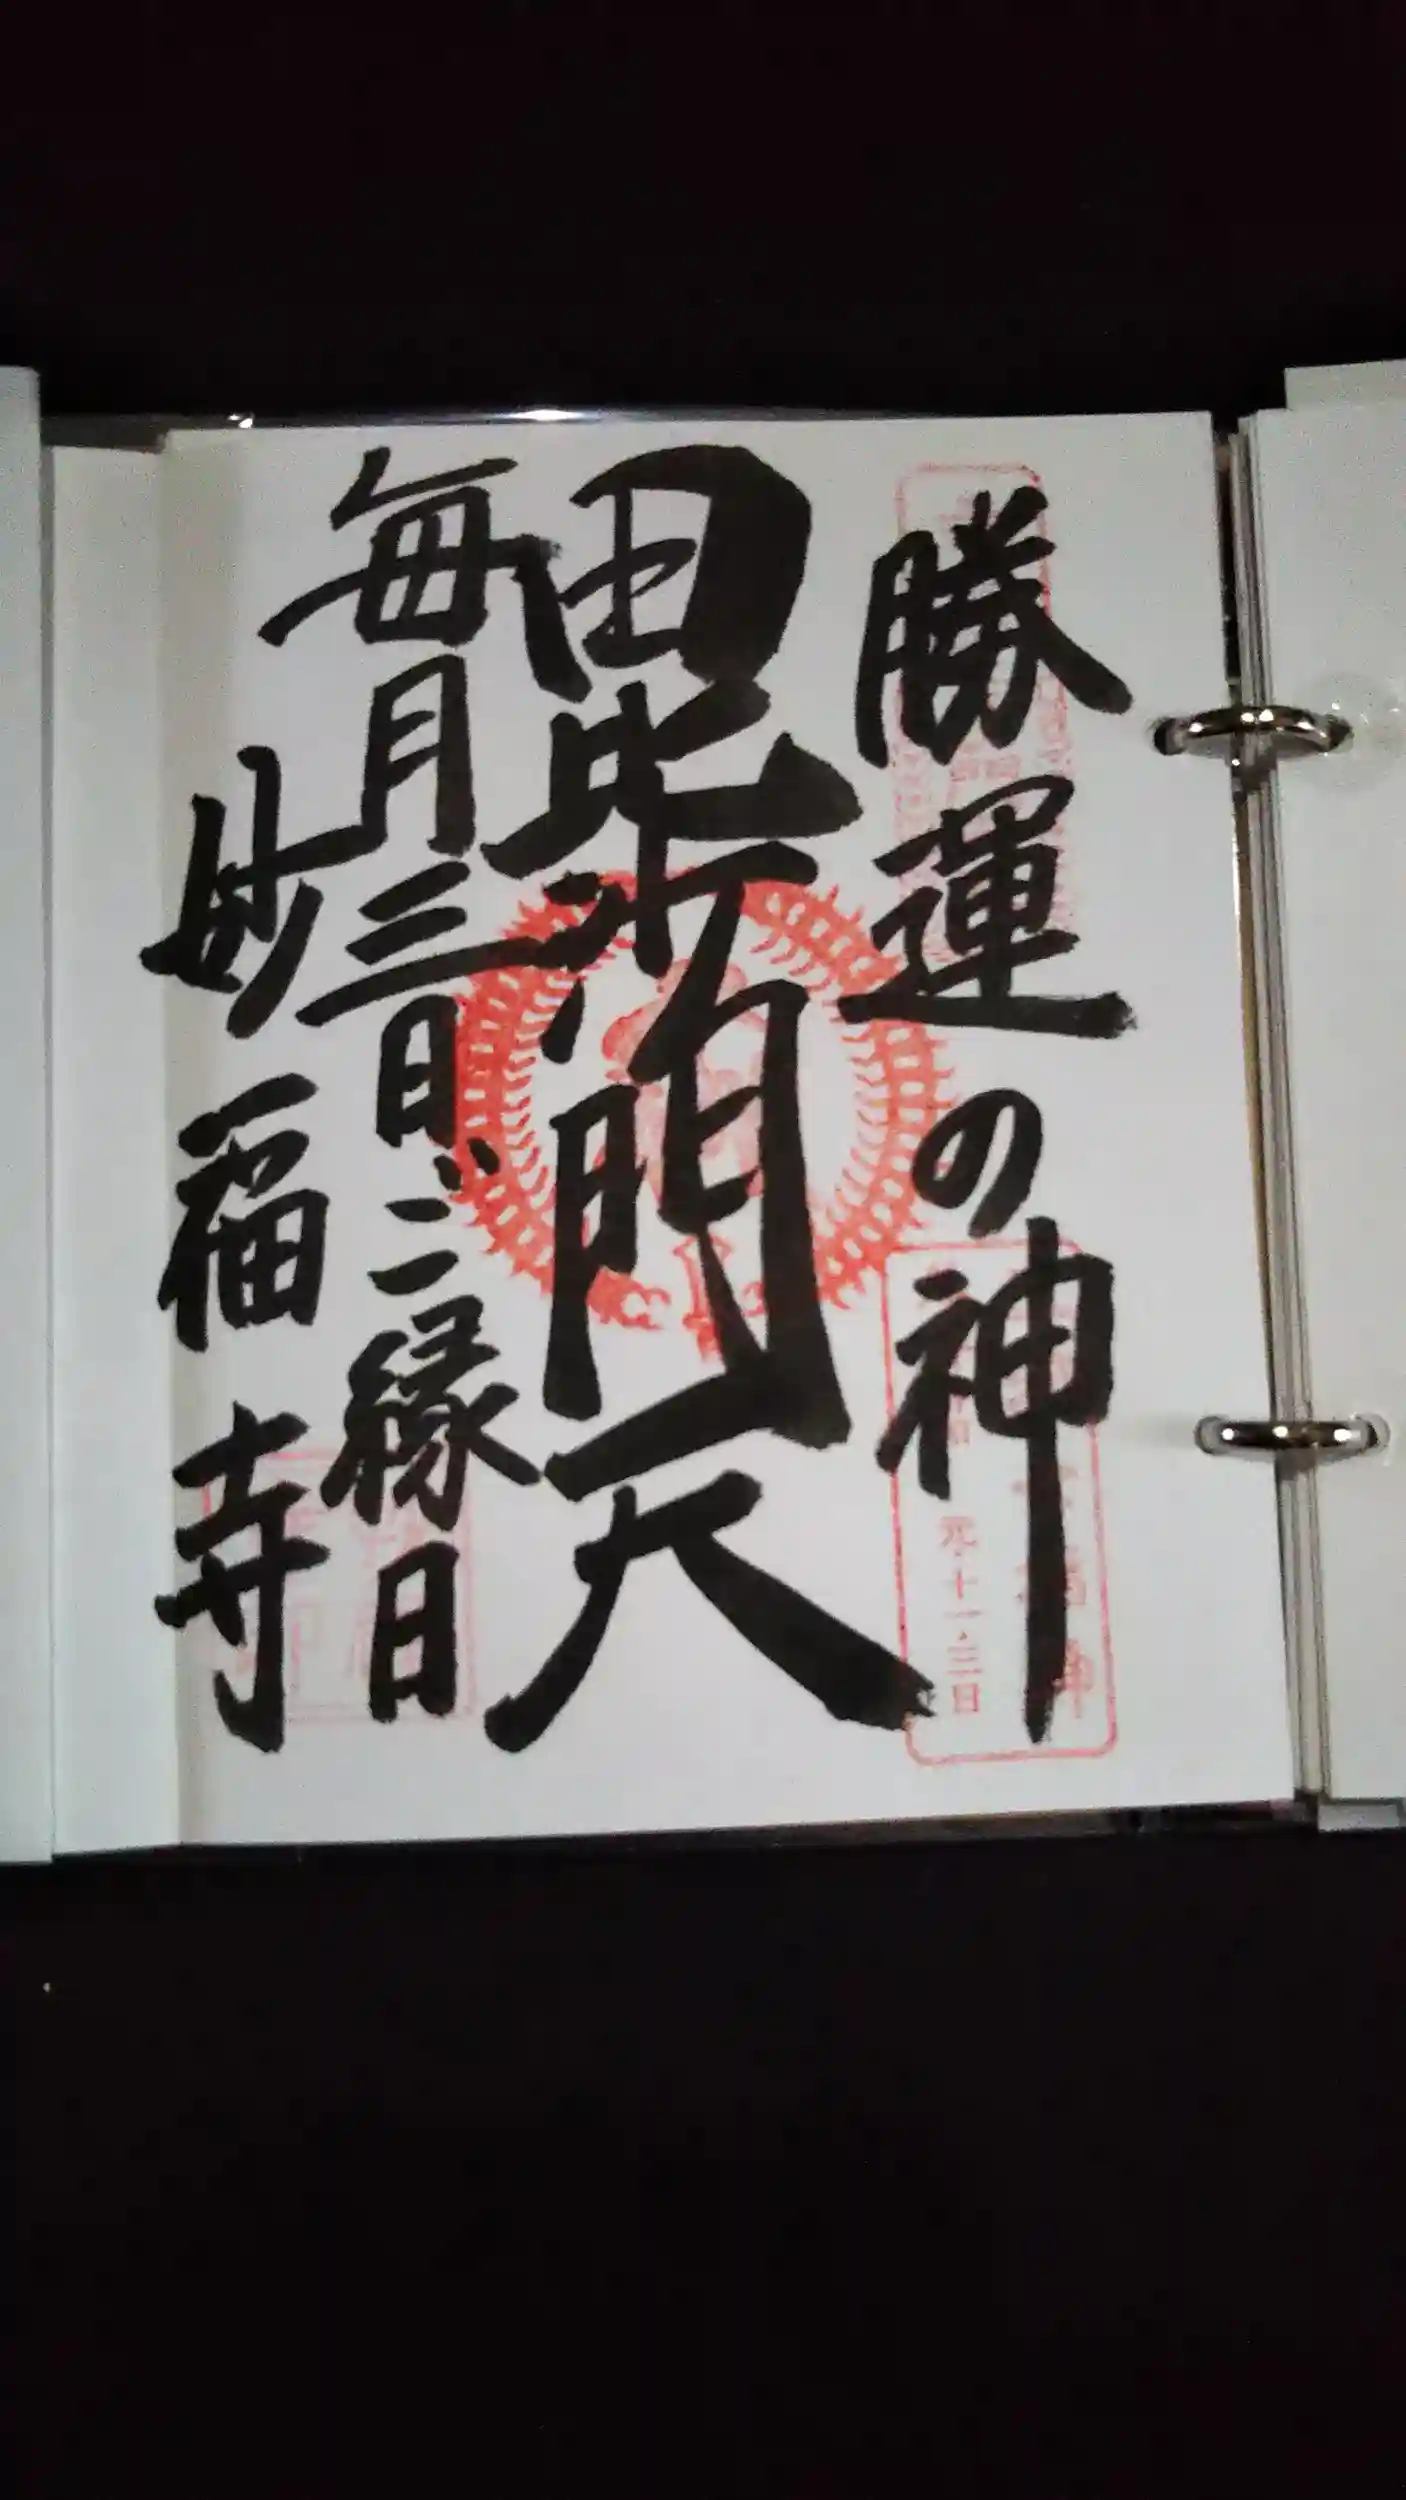 勝運の神
毘沙門天
毎月三日ご縁日
妙福寺